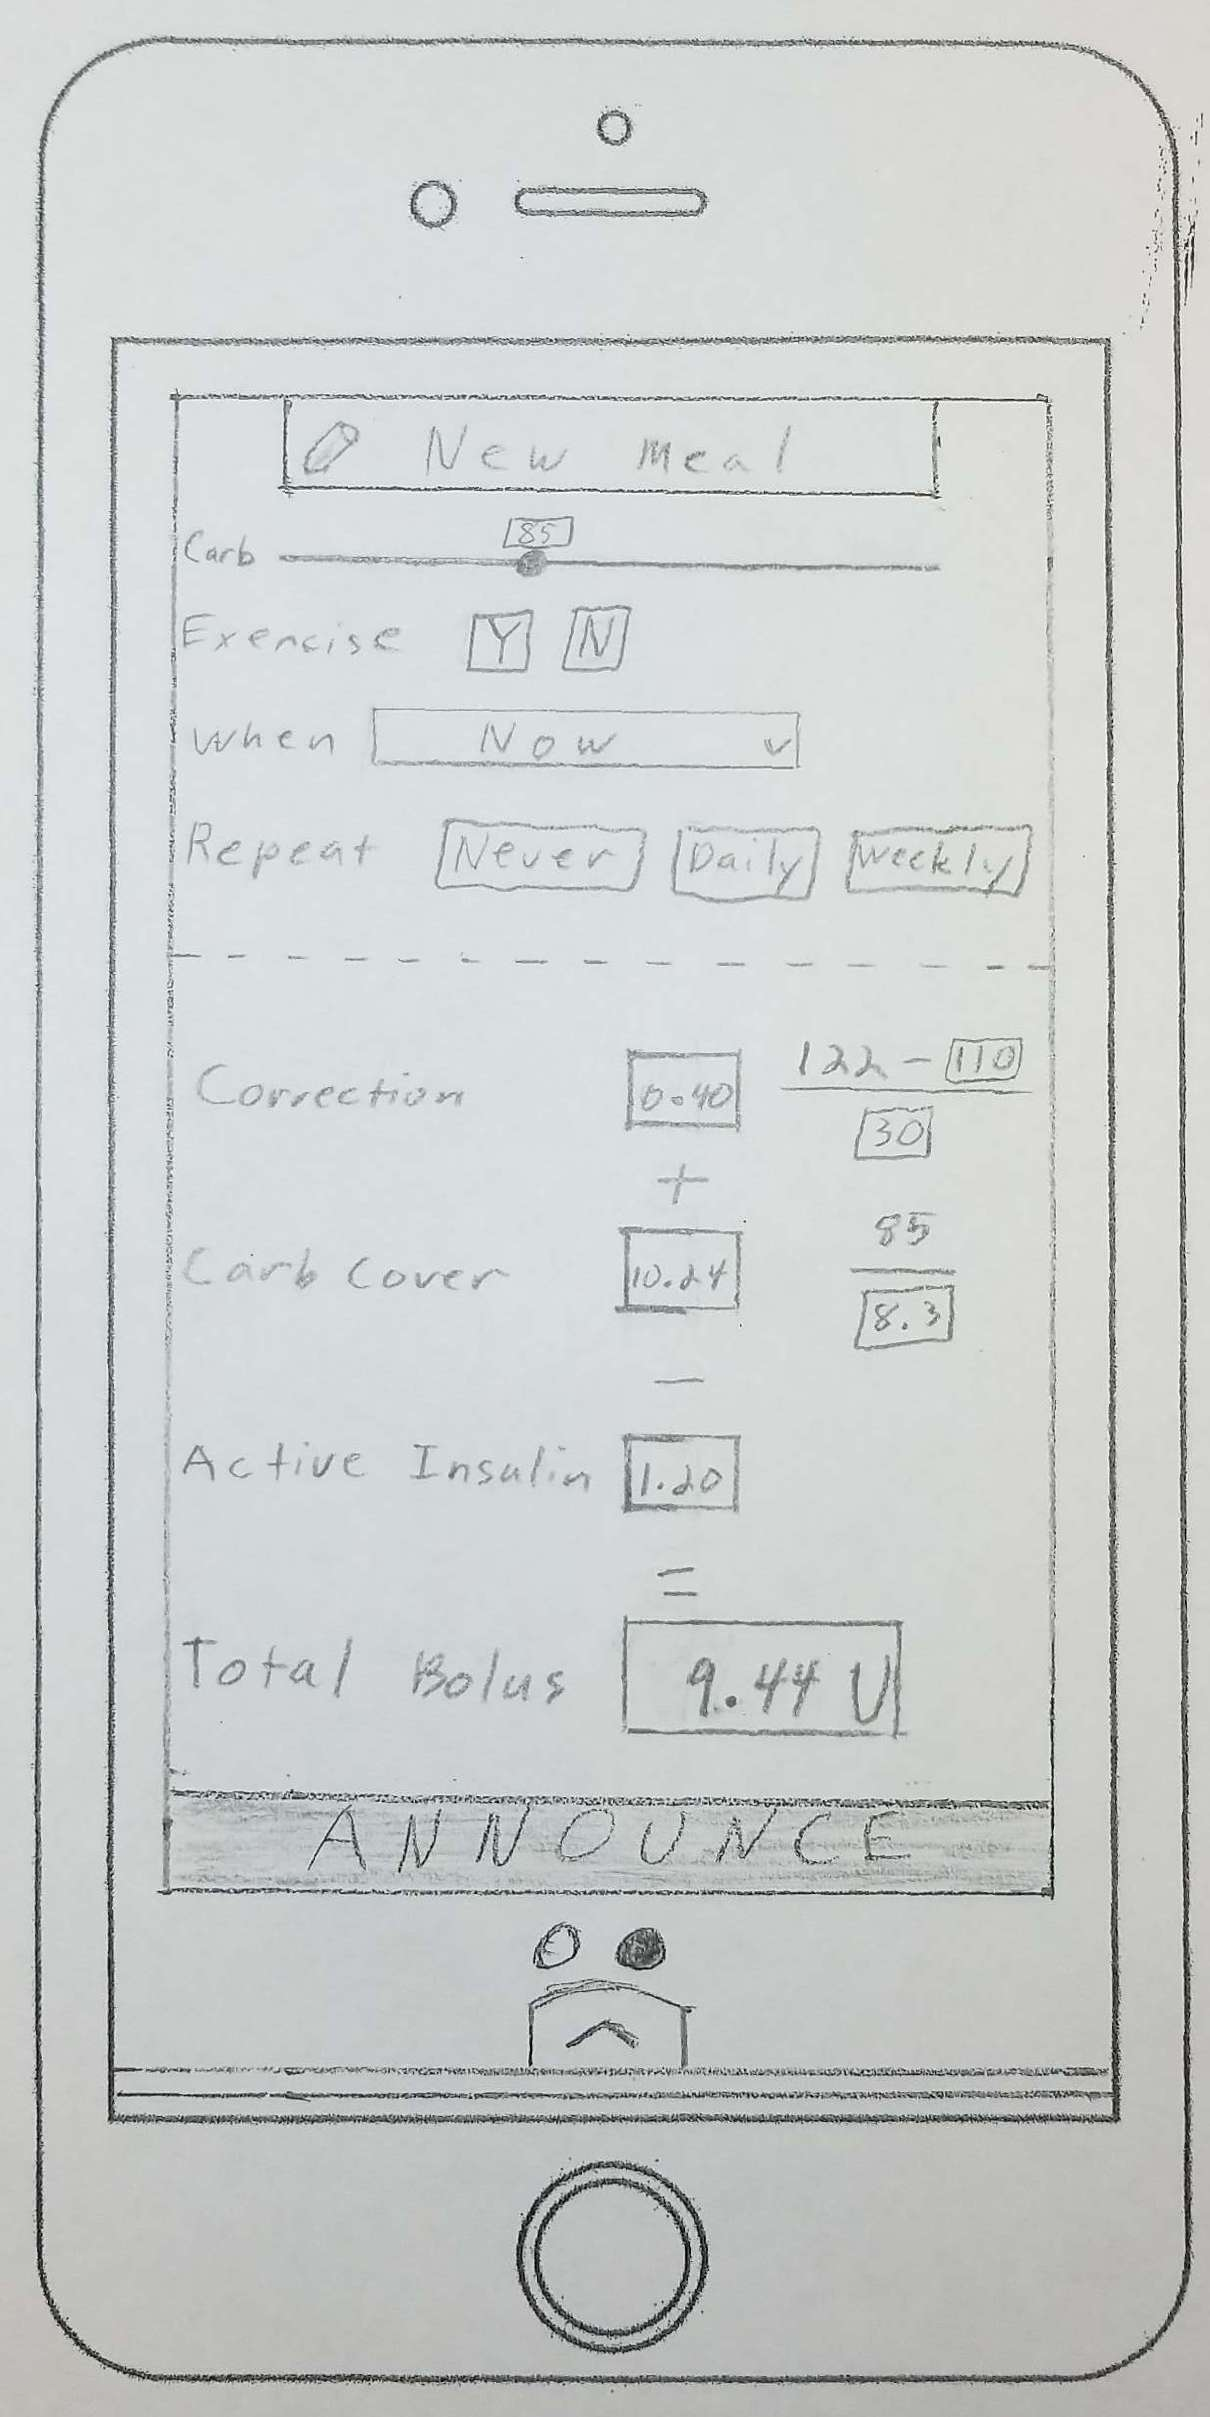 New Meal
85
Carb
Exercise Y N
When Now
Repeat Never Daily Weekly
Correction 0.40 122 - 110
30
+
Carb Cover 10.24 85
8.3
-
Active Insulin 1.20
=
Total Bolus 9.44 U
ANNOUNCE